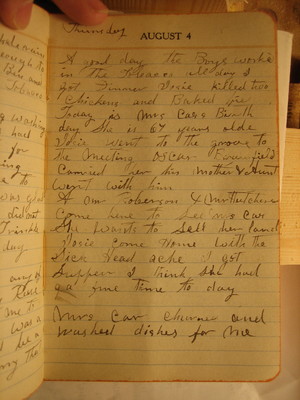 Thursday
AUGUST 4
A good day the Boys workin
in the Tobacco all day I
got Dinner Josie killed two
Chickens and Baked pie
Today is Mrs Cars Birth
day She is 67 years olde
Josie went to the grove to
the Meeting Oscar
Carried her his Mother & Aunt
went with him
A Mr Roberson &
Come here to See Mrs Car
She Wants to Sell her land
Josie Come Home With the
Sick Head ache I got
Supper I think She had
a fine time to day
Mrs Car churne and
washed dishes for me